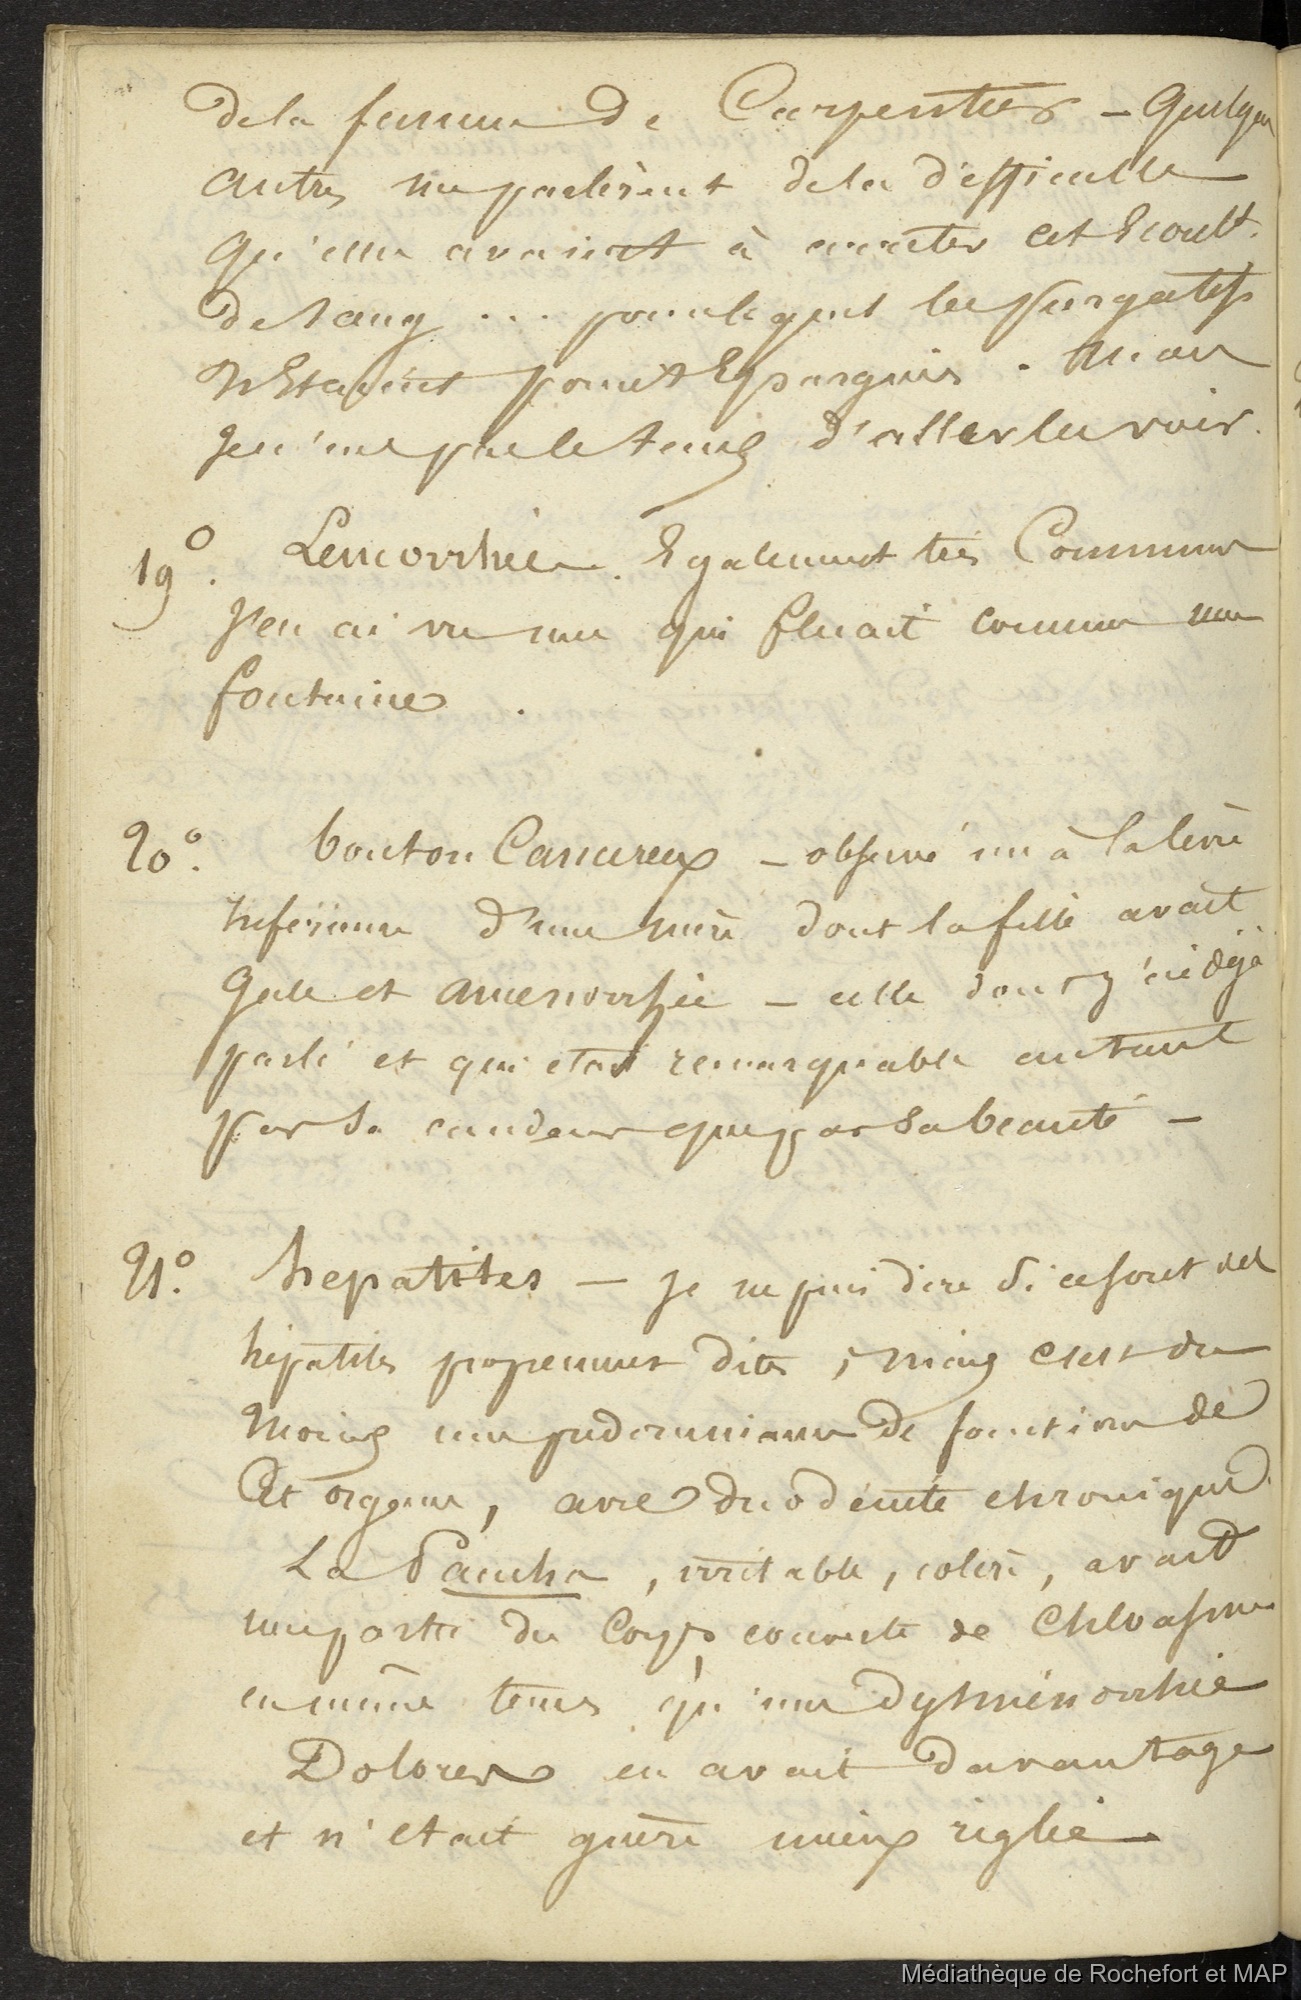 de la femme de Carpentier – Quelques
autres me parlèrent de la difficulté
qu'elles avaient à arrêter cet écoult.
de sang ... pour lequel les purgatifs
n'Etaient point Epargnés. Mais
je n'eus pas le tems d'aller les voir.
19°. Leucorrhée. Egalement très Commune
J'en ai vu une qui fluait comme une
fontaine.
20°. bouton Cancereux – observé un à la lèvre
inférieure d'une mère dont la fille avait
Gale et amenorrhée – celle dont j'ai déjà
parlé et qui etait remarquable autant
par sa candeur que par sa beauté –
21°. hepatites – je ne puis dire si ce sont des
hépatites proprement dites, mais c'est du
moins une prédominance de fonction de
Cet organe, avec duodénite chronique.
La Pancha, irritable, colère, avait
une partie du Corps couverte de Chloasma
en même tems qu'une dysménorrhée
Dolores en avait davantage
et n'était guère mieux réglée.
Médiathèque de Rochefort et MAP